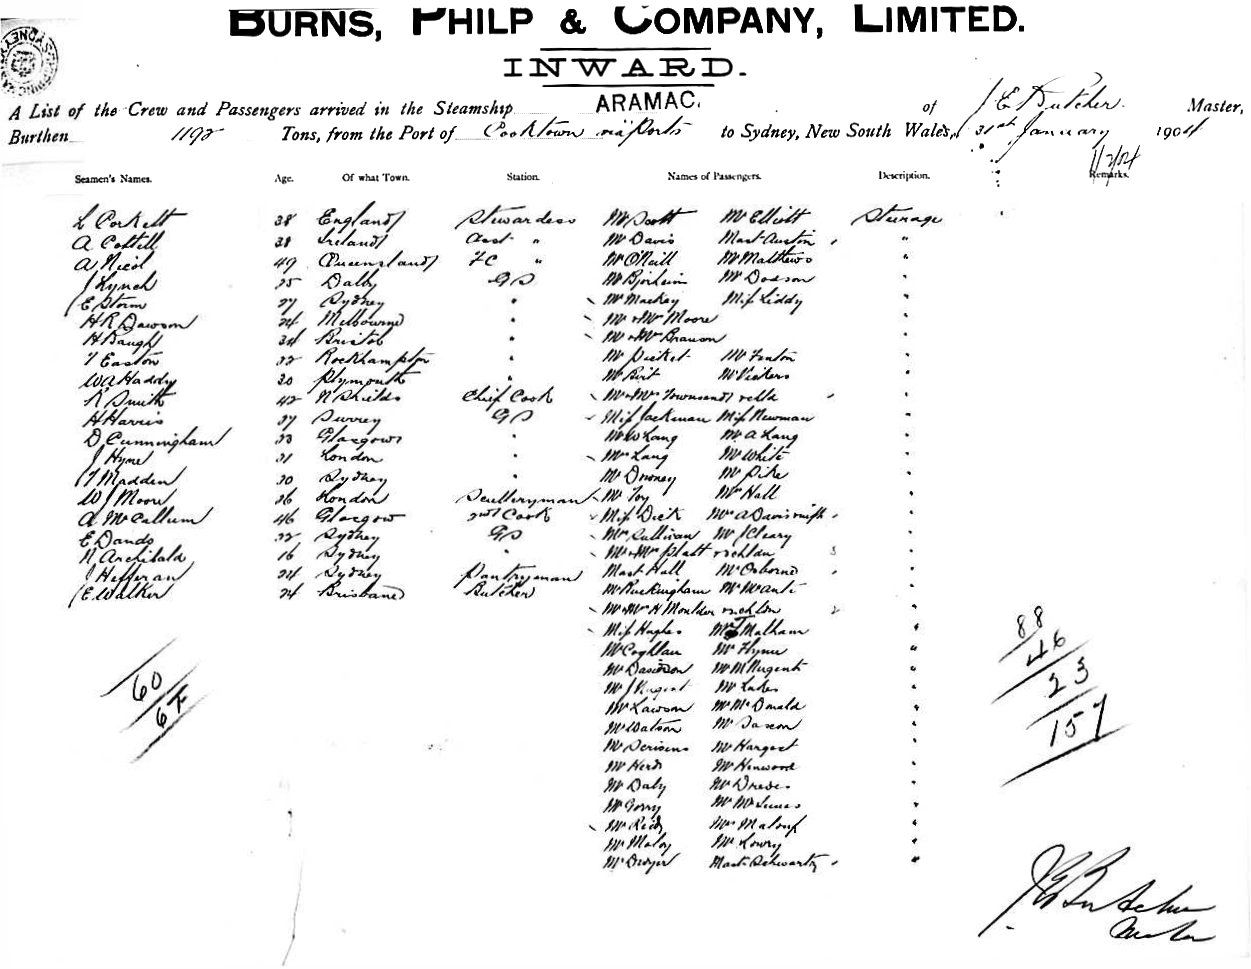 BURNS, PHILP & COMPANY, LIMITED.
INWARD.
A List of the Crew and Passengers arrived in the Steamship ARAMAC. of J E Butcher Master,
Burthen 1192 Tons, from the Port of Cooktown via Ports to Sydney, New South Wales, 31st January 1904
1/2/04
Seamen's Names. Age. Of what Town. Station. Names of Passengers. Description. Remarks.
L Corkett 38 England Stewardess Mr Scott Mr Elliott Steerage
A Cottell 38 Ireland Asst " Mr Davis Mast Austin "
A Nicol 49 Queensland FC " Mr O'Neill Mr Mathews "
J Lynch 25 Dalby GS Mr Bjorheim Mr Dodson "
E Storm 27 Sydney " Mr Mackay Miss Liddy "
H R Dawson 24 Melbourne " Mr & Mrs Moore "
H Baugh 34 Bristol " Mr & Mrs Branson "
T Easton 22 Rockhampton " Mr Picket Mr Fenton "
W A Haddy 30 Plymouth " Mr Birt Mr Vickers "
R Smith 42 N Shields Chief Cook Mr & Mrs Townsend "
H Harris 27 Surrey GS Miss Jackman Miss Newman "
D Cunningham 33 Glasgow " Mr W Lang Mr A Lang "
J Hyne 21 London " Mrs Lang Mr White "
T Madden 20 Sydney " Mr Downey Mr Pike "
W J Moore 26 London Sculleryman Mr Toy Mr Hall "
A McCallum 46 Glasgow 2nd Cook Miss Dick Mrs A Davis "
E Dands 22 Sydney GS Mr Sullivan Mr J Cleary "
N Archibald 16 Sydney " Mr & Mrs Platt & chldn 3 "
J Hefferan 24 Sydney Pantryman Mast Hall Mr Osborne "
E Walker 24 Brisbane Butcher Mr Buckingham Mr "
Mr & Mrs H Moulder 2 "
Miss Hughes Mr Malham "
Mr Coghlan Mr Flynn "
Mr Davidson Mr M Nugent "
Mr J Nugent Mr Lukes "
Mr Lawson Mr McDonald "
Mr Watson Mr Saxon "
Mr Mr Hargest "
Mr Herd Mr Henwood "
Mr Daly Mr Drewes "
Mr Gorry Mr McInnes "
Mr Reid Mrs Malouf "
Mr Maloy Mr Lowry "
Mr Dwyer Mast Schwartz "
60
67
88
46
23
157
J E Butcher
Master